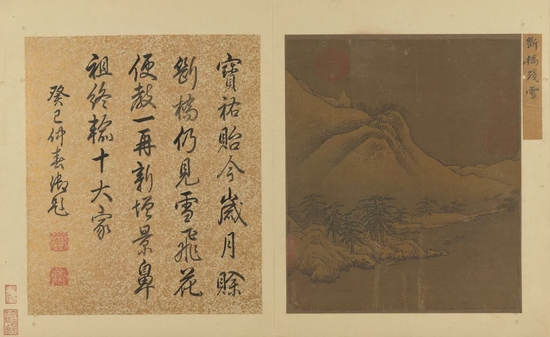 寶祐貽今歲月賒
斷橋仍見雪飛花
便教一再新增景鼻
祖終輸十大家
癸巳仲春御題
斷橋殘雪